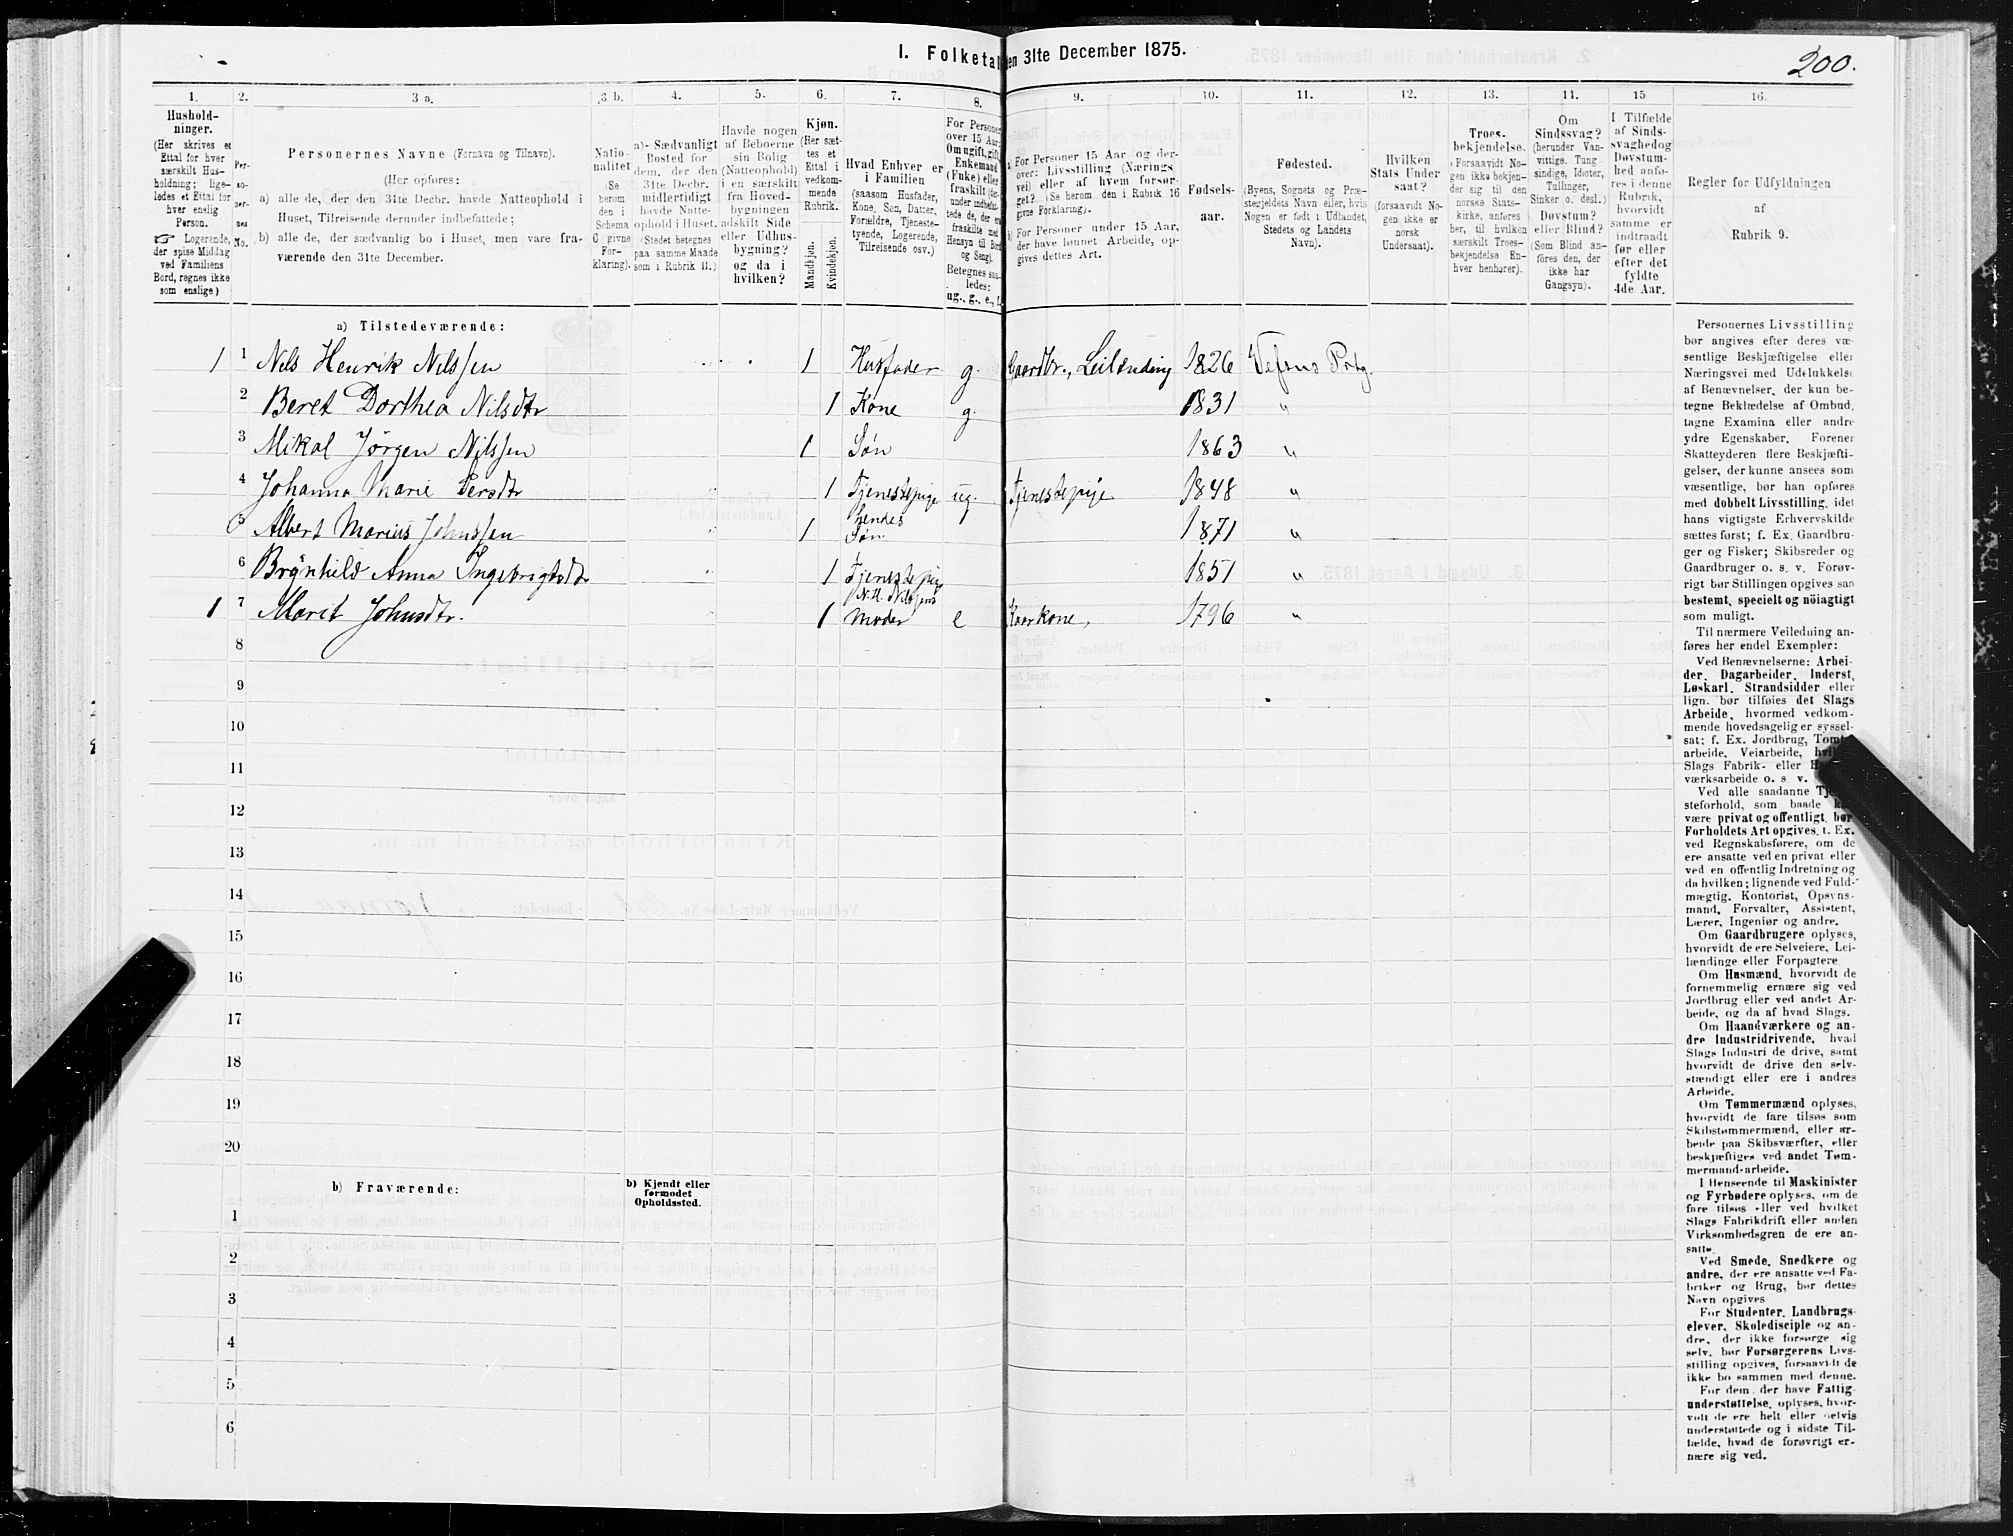 I. Folketal den 31te December 1875.
200.
1.
Hushold-
ninger.
(Her skrives et
Ettal for hver
særskilt Hus-
holdning; lige-
ledes et Ettal for
hver enslig
Person.
☞ Logerende,
der spise Middag
ved Familiens
Bord, regnes ikke
som enslige)
2.
Per-
so-
ner-
nes
No.
3 a.
Personernes Navne (Fornavn og Tilnavn).
(Her opføres:
a) alle de, der den 31te Decbr. havde Natteophold i
Huset, Tilreisende derunder indbefattede;
b) alle de, der sædvanlig bo i Huset, men vare fra-
værende den 31te December.
3 b.
Natio-
nalitet
(Se
herom
den i
Schema
C givne
For-
klaring).
4.
a)- Sædvanligt
Bosted for
dem, der den
31te Decbr.
midlertidigt
havde Natte-
ophold i Huset.
(Stedet betegnes
paa samme Maade
som i Rubrik 11.)
5.
Havde nogen
af Beboerne
sin Bolig
(Natteophold)
i en særskilt
fra Hoved-
bygningen
adskilt Side
eller Udhus-
bygning?
og da i
hvilken?
6.
Kjøn.
(Her sæt-
tes et
Ettal i
vedkom-
mende
Rubrik.
Mandkjøn.
Kvindekjøn.
7.
Hvad Enhver er
i Familien
(saasom Husfader,
Kone, Søn, Datter,
Forældre, Tjeneste-
tyende, Logerende,
Tilreisende osv.)
8.
For Personer
over 15 Aar:
Om ugift, gift,
Enkemand
(Enke) eller
fraskilt
Betegnes saa-
ledes:
ug., g., e., f.
9.
a) For Personer 15 Aar og der-
over: Livsstilling (Nærings
vei) eller af hvem forsør-
get? (Se herom den i Rubrik 16
givne Forklaring).
b) For Personer under 15 Aar,
der have lønnet Arbeide, op-
gives dettes Art.
10.
Fødsels-
aar.
11.
Fødested.
(Byens, Sognets og Præ-
stegjeldets Navn eller, hvis
Nogen er født i Udlandet,
Stedets og Landets
Navn).
12.
Hvilken
Stats Under
saat?
(forsaavidt No-
gen ikke er
norsk
Undersaat).
13.
Troes-
bekjendelse.
(Forsaavidt No-
gen ikke bekjen-
der sig til den
norske Stats-
kirke, anføres
her, til hvilken
særskilt Troes-
bekjendelse En-
hver henhører).
14.
Om
Sindssvag?
(herunder Van-
vittige, Tung
sindige, Idioter,
Tullinger,
Sinker o. desl.)
Døvstum?
eller Blind?
(Som Blind an-
føres den, der
ikke har
Gangsyn).
15
I Tilfælde
af Sinds-
svaghed og
Døvstum-
hed anfø-
res i denne
Rubrik,
hvorvidt
samme er
indtraadt
før eller
efter det
fyldte
4de Aar.
16.
Regler for Udfyldningen
af
Rubrik 9.
a) Tilstedeværende:
1 1 Nils Henrik Nilssen 1 Husfader g. Gaardbr., Leilænding 1826 Vefsns Prtg.
2 Beret Dorthea Nilsdtr 1 Kone g. 1831 "
3 Mikal Jörgen Nilssen 1 Søn 1863 "
4 Johanna Marie Persdtr 1 Tjenestepige ug. Tjenestepige 1848 "
5 Albert Marius Johnssen 1 hendes Søn 1871 "
6 Brynhild Anna Ingebrigtsdtr 1 Tjenestepige 1851 "
1 7 Marit Johnsdtr. 1 N.H. Nilssens Moder e Kaarkone, 1796 "
8
9
10
11
12
13
14
15
16
17
18
19
20
b) Fraværende:
b) Kjendt eller
formodet
Opholdssted.
1
2
3
4
5
6
Personernes Livsstilling
bør angives efter deres væ-
sentlige Beskjæftigelse eller
Næringsvei med Udelukkelse
af Benævnelser, der kun be-
tegne Beklædelse af Ombud,
tagne Examina eller andre
ydre Egenskaber. Forener
Skatteyderen flere Beskjæfti-
gelser, der kunne ansees som
væsentlige, bør han opføres
med dobbelt Livsstilling, idet
hans vigtigste Erhvervskilde
sættes først; f. Ex. Gaardbru-
ger og Fisker; Skibsreder og
Gaardbruger o. s. v. Forøv-
rigt bør Stillingen opgives saa
bestemt, specielt og nöiagtigt
som muligt.
Til nærmere Veiledning an-
føres her endel Exempler:
Ved Benævnelserne: Arbei-
der, Dagarbeider, Inderst,
Løskarl, Strandsidder eller
lign. bør tilføies det Slags
Arbeide, hvormed vedkom-
mende hovedsagelig er syssel-
sat; f. Ex. Jordbrug, Tomte-
arbeide, Veiarbeide, hvilket
Slags Fabrik- eller Haand-
værksarbeide o. s. v.
Ved alle saadanne Tjene-
steforhold, som baade kan
være privat og offentligt, bør
Forholdets Art opgives, t. Ex.
ved Regnskabsførere, om de
ere ansatte ved en privat eller
ved en offentlig Indretning og
da hvilken; lignende ved Fuld-
mægtig, Kontorist, Opsyns-
mand, Forvalter, Assistent,
Lærer, Ingeniør og andre.
Om Gaardbrugere oplyses,
hvorvidt de ere Selveiere, Lei-
lændinge eller Forpagtere
Om Husmænd, hvorvidt de
fornemmelig ernære sig ved
Jordbrug eller ved andet Ar-
beide, og da af hvad Slags.
Om Haandværkere og an-
dre Industridrivende, hvad
Slags Industri de drive, samt
hvorvidt de drive den selv-
stændigt eller ere i andres
Arbeide.
Om Tømmermænd oplyses,
hvorvidt de fare tilsøs som
Skibstømmermænd, eller ar-
beide paa Skibsværfter, eller
beskjæftiges ved andet Tøm-
mermand-arbeide.
I Henseende til Maskinister
og Fyrbødere oplyses, om de
fare tilsøs eller ved hvilket
Slags Fabrikdrift eller anden
Virksomhedsgren de ere an-
satte.
Ved Smede, Snedkere og
andre, der ere ansatte ved Fa-
briker og Brug, bør dettes
Navn opgives
For Studenter, Landbrugs-
elever, Skoledisciple og an-
dre, der ikke forsørge sig
selv, bør Forsørgerens Livs-
stilling opgives, forsaavidt de
ikke bo sammen med denne.
For dem, der have Fattig-
understøttelse, oplyses, hvor-
vidt de ere helt eller delvis
understøttede og i sidste Til-
fælde, hvad de forøvrigt er-
nære sig ved.